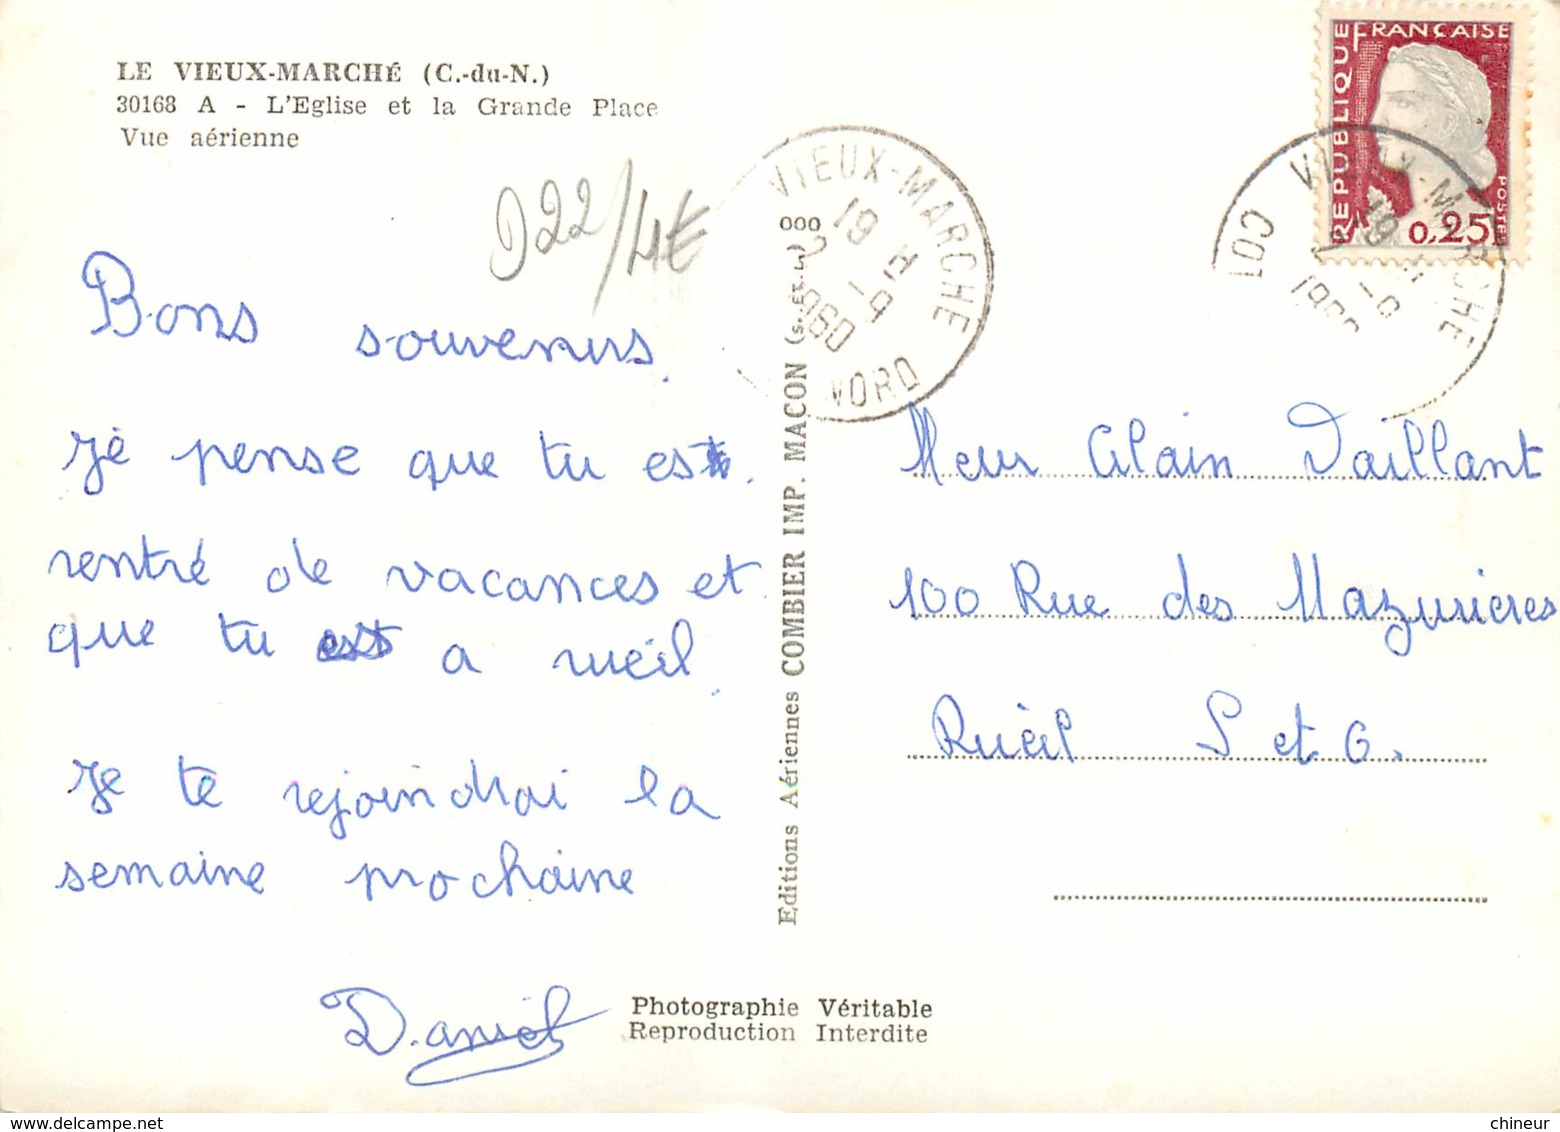 LE VIEUX-MARCHÉ (C.-du-N.)
30168 A - L'Eglise et la Grande Place
Vue aérienne
D22/4€
Bons souvenirs.
Je pense que tu est.
rentré de vacances et
que tu est a rueil.
Je te rejoindrai la
semaine prochaine
Daniel
Photographie Véritable
Reproduction Interdite
Editions Aériennes COMBIER IMP. MACON (S.-ET-L.)
VIEUX-MARCHE
19 H
2 -9
1960
NORD
REPUBLIQUE FRANÇAISE
POSTES
0,25
VIEUX-MARCHE
19 H
-9
COT
Meur Alain Daillant
100 Rue des Mazurieres
Rueil S et O.
chineur